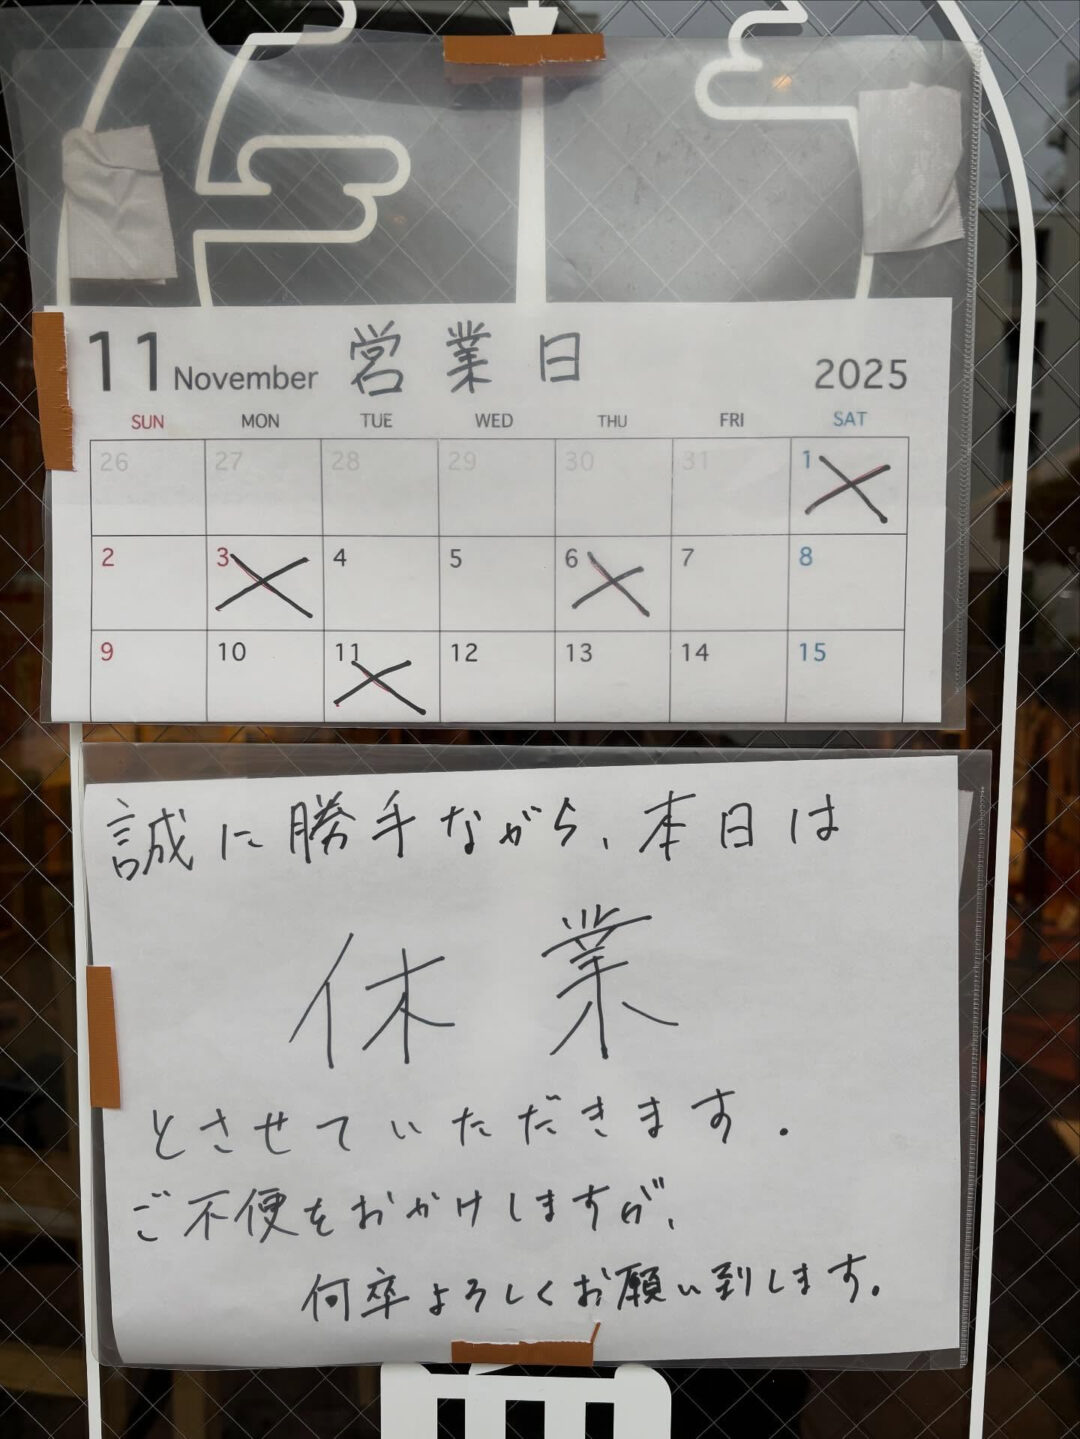 11 November 営業日 2025
SUN MON TUE WED THU FRI SAT
26 27 28 29 30 31 1
2 3 4 5 6 7 8
9 10 11 12 13 14 15
誠に勝手ながら、本日は
休業
とさせていただきます.
ご不便をおかけしますが、
何卒よろしくお願い到します。